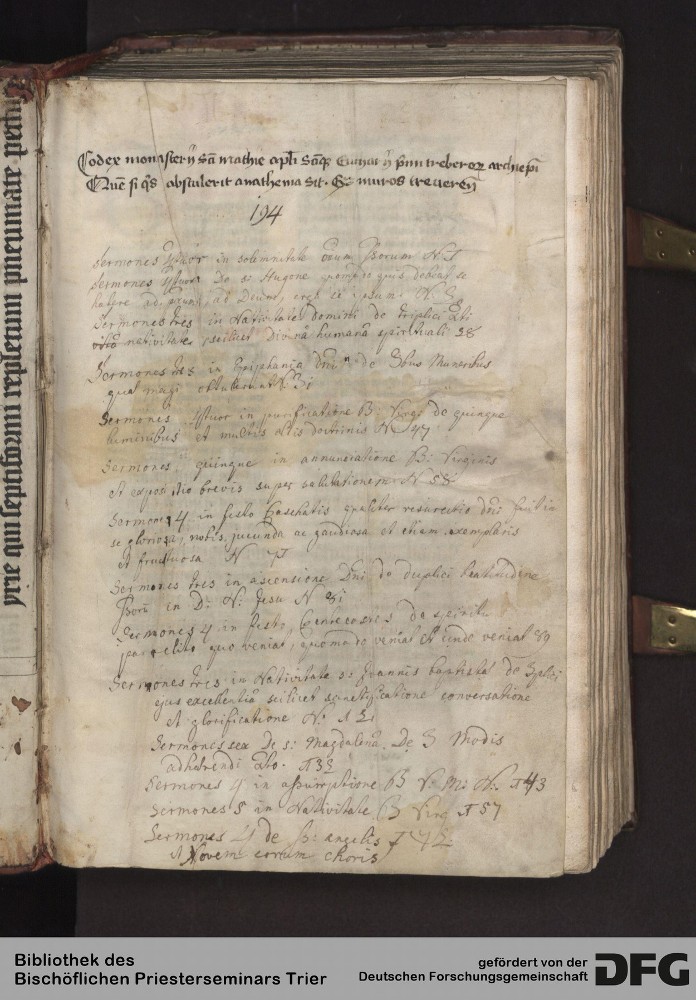 prie qui septiformi repletum pneumate
Codex monasterij Sancti mathie apli Sanctique Eucharij primi treberorum archiepi
Quem si quis abstulerit anathema sit. Extra muros treueren
194
Sermones quatuor in solemnitate omnium
Sermones quatuor De s: Hugone quis debeat se
habere ad proximum, ad Deum, erga se ipsum N.
Sermones tres in Nativitate domini de triplici
nativitate scilicet divina humana spirituali 28
Sermones tres in Epiphania dni de 3bus Muneribus
quae magi obtulerunt
Sermones quatuor in purificatione B: Virg: de quinque
luminibus et multis aliis doctrinis N 47
Sermones quinque in annunciatione B: Virginis
et expositio brevis super salutationem N 58
Sermones 4 in festo Paschatis qualiter resurrectio dni fuit in
se gloriosa, nobis jucunda ac gaudiosa et etiam exemplaris
et fructuosa N
Sermones tres in ascensione Dni de duplici beatitudine
in D: N: Jesu N
Sermones 4 in festo Pentecostes de spiritu
paraclito quo veniat, quomodo veniat et unde veniat 89
Sermones tres in Nativitate s: Joannis baptistae de 3plici
ejus excellentia scilicet sanctificatione conversatione
et glorificatione N:
Sermones sex De s: Magdalena De 3 Modis
adhaerendi 133
Sermones 4 in assumptione B V: M: N: 143
Sermones 5 in Nativitate B Virg 157
Sermones 4 de ss: angelis
et Novem eorum choris
Bibliothek des
Bischöflichen Priesterseminars Trier
gefördert von der
Deutschen Forschungsgemeinschaft
DFG